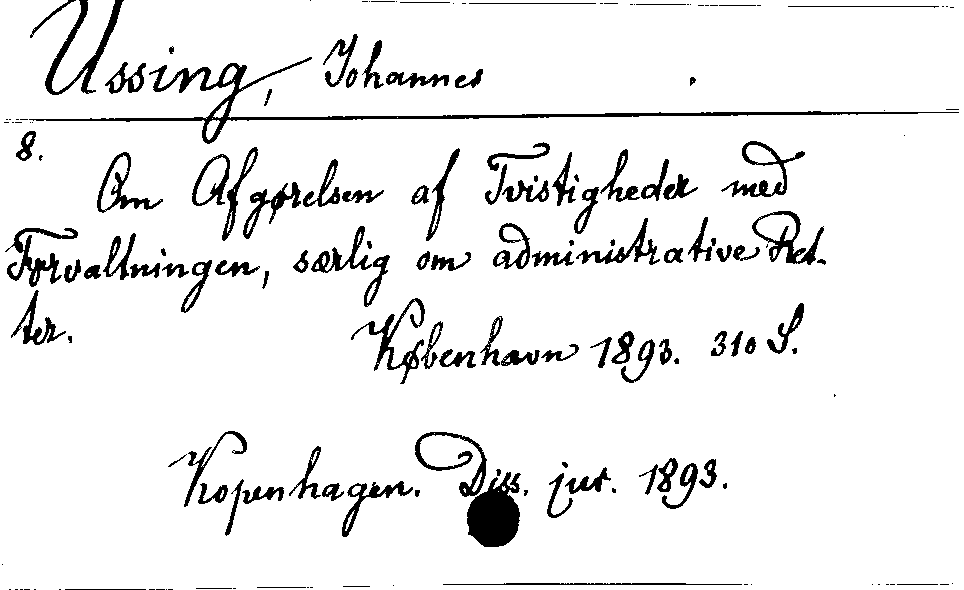 Ussing, Johannes
8.
Om Afgørelsen af Tvistigheder med
Forvaltningen, særlig om administrative Ret-
ter.
København 1893. 310 S.
Kopenhagen. Diss. jur. 1893.